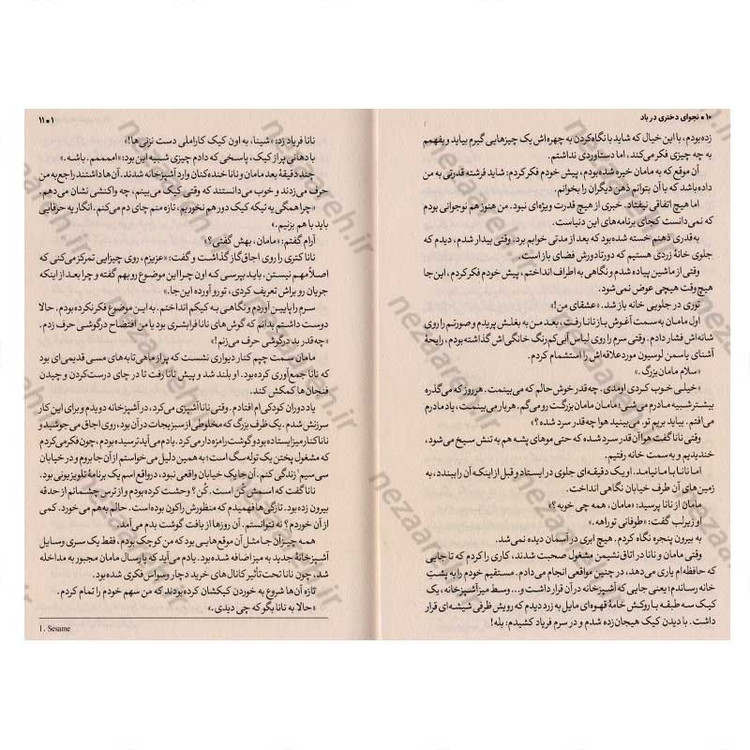 ۱۰ • نجوای دختری در باد
زده‌بودم، با این خیال که شاید با نگاه‌کردن به چهره‌اش یک چیزهایی گیرم بیاید و بفهمم
به چه چیزی فکر می‌کند، اما دستاوردی نداشتم.
آن موقع که به مامان خیره شده‌بودم، پیش خودم فکر کردم: شاید فرشته قدرتی به من
داده‌باشد که با آن بتوانم ذهن دیگران را بخوانم.
اما هیچ اتفاقی نیفتاد. خبری از هیچ قدرت ویژه‌ای نبود. من هنوز هم نوجوانی بودم
که نمی‌دانست کجای برنامه‌های این دنیاست.
به‌قدری ذهنم خسته شده‌بود که بعد از مدتی خوابم برد. وقتی بیدار شدم، دیدم که
جلوی خانهٔ زردی هستیم که دورتادورش فضای باز است.
وقتی از ماشین پیاده شدم و نگاهی به اطراف انداختم، پیش خودم فکر کردم، این‌جا
هیچ‌وقت هیچی عوض نمی‌شود.
توری در جلویی خانه باز شد. «عشقای من!»
اول مامان به‌سمت آغوش باز نانا رفت، بعد من به بغلش پریدم و صورتم را روی
شانه‌اش فشار دادم. وقتی سرم را روی لباس آبی‌کم‌رنگ خانگی‌اش گذاشته‌بودم، رایحهٔ
آشنای یاسمن لوسیون موردعلاقه‌اش را استشمام کردم.
«سلام مامان بزرگ.»
«خیلی خوب کردی اومدی. چه‌قدر خوش حالم که می‌بینمت. هرروز که می‌گذره
بیشتر شبیه مادرم می‌شی! مامان مامان بزرگت رو می‌گم. هر بار می‌بینمت، یاد مادرم
می‌افتم. بیاید بریم تو. می‌بینید هوا چه‌قدر سرد شده؟»
وقتی نانا گفت هوا آن‌قدر سرد شده که حتی موهای پشه هم به تنش سیخ می‌شود،
خندیدیم و به‌سمت خانه رفتیم.
اما نانا با ما نیامد. او یک دقیقه‌ای جلوی در ایستاد و قبل از اینکه آن را ببندد، به
زمین‌های آن طرف خیابان نگاهی انداخت.
مامان از نانا پرسید: «مامان، همه چی خوبه؟»
او زیرلب گفت: «طوفانی توراهه.»
به بیرون پنجره نگاه کردم. هیچ ابری در آسمان دیده نمی‌شد.
وقتی مامان و نانا در اتاق نشیمن مشغول صحبت شدند، کاری را کردم که تا جایی
که حافظه‌ام یاری می‌دهد، در چنین مواقعی انجام می‌دادم. مستقیم خودم را به پشتِ
خانه رساندم؛ یعنی جایی که آشپزخانه در آن قرار داشت و... وسط میز آشپزخانه، یک
کیک سه طبقه با روکش خامهٔ قهوه‌ای مایل به زرد دیدم که رویش ظرفی شیشه‌ای قرار
داشت. با دیدن کیک هیجان‌زده شدم و در سرم فریاد کشیدم: بله!
۱۱ •
نانا فریاد زد: «شینا، به اون کیک کاراملی دست نزنی ها!»
با دهانی پر از کیک، پاسخی که دادم چیزی شبیه این بود: «اممممم. باشه.»
چند دقیقهٔ بعد مامان و نانا خنده‌کنان وارد آشپزخانه شدند. آن‌ها داشتند راجع‌به من
حرف می‌زدند و خوب می‌دانستند که وقتی کیک می‌بینم، چه واکنشی نشان می‌دهم.
«چرا همگی یه تیکه کیک دور هم نخوریم، تازه منم چای دم می‌کنم. انگار یه حرفایی
باید با هم بزنیم.»
آرام گفتم: «مامان، بهش گفتی؟»
نانا کتری را روی اجاق‌گاز گذاشت و گفت: «عزیزم، روی چیزایی تمرکز می‌کنی که
اصلاً مهم نیستن. باید بپرسی که اون چرا این موضوع رو بهم گفته و چرا بعد از اینکه
جریان رو براش تعریف کردی، تو رو آورده این‌جا.»
سرم را پایین آوردم و نگاهی به کیکم انداختم. به این موضوع فکر نکرده‌بودم. حالا
دوست داشتم بدانم که گوش‌های نانا فرابشری بود یا من افتضاح درگوشی حرف زدم.
«چه‌قدر بد درگوشی حرف می‌زنم!»
مامان سمت چپم کنار دیواری نشست که پر از ماهی‌تابه‌های مسی قدیمی‌ای بود
که نانا جمع‌آوری کرده‌بود. او بلند شد و پیش نانا رفت تا در چای درست‌کردن و چیدن
فنجان‌ها کمکش کند.
یاد دوران کودکی‌ام افتادم. وقتی نانا آشپزی می‌کرد، در آشپزخانه دویدم و برای این کار
سرزنش شدم. یک ظرف بزرگ که مخلوطی از سبزیجات در آن بود، روی اجاق می‌جوشید و
نانا کنار میز ایستاده بود و گوشت را مزه‌دار می‌کرد. یادم می‌آید ترسیده بودم، چون فکر می‌کردم
که مشغول پختن یک توله سگ است؛ به همین دلیل می‌خواستم از آن جا بروم و در خیابان
سی‌سیم¹ زندگی کنم. آن‌جا یک خیابان واقعی نبود، درواقع اسم یک برنامهٔ تلویزیونی بود.
نانا گفت که اسم او کُن است. کُن؟ وحشت کرده‌بودم و از ترس چشمانم از حدقه
بیرون زده بود. تازگی‌ها فهمیدم که منظورش راکون بوده‌است. حالم به‌هم می‌خورد. کمی
از آن خوردم؟ نه نتوانستم. آن روزها از بافت گوشت بدم می‌آمد.
همه چیز آن جا مثل آن موقع‌هایی بود که من کوچک بودم. فقط یک سری وسایل
آشپزخانهٔ جدید به میز اضافه شده‌بود. یادم می‌آید که پارسال مامان مجبور به مداخله
شد، چون نانا تحت‌تأثیر کانال‌های خرید دچار وسواس فکری شده بود.
تازه آن‌ها شروع به خوردن کیکشان کرده‌بودند که من سهم خودم را تمام کردم.
«حالا به نانا بگو که چی دیدی.»
1. Sesame
nezaareh.ir